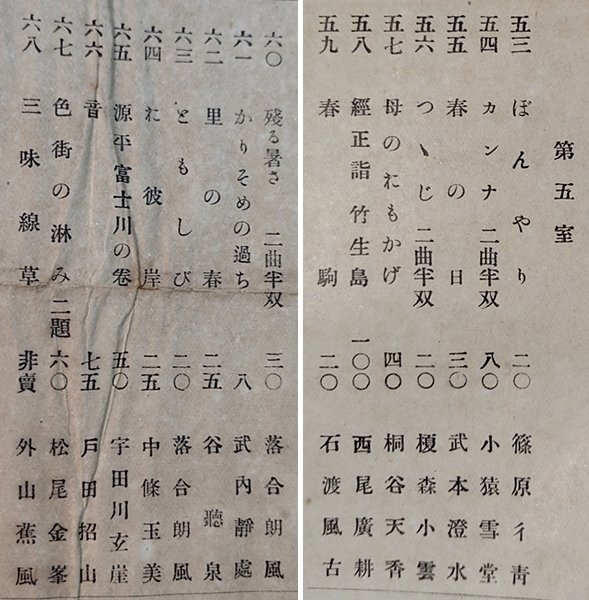 第五室
五三 ぼんやり 二〇 篠原彳青
五四 カンナ 二曲半双 八〇 小猿雪堂
五五 春の日 三〇 武本澄水
五六 つゝじ 二曲半双 二〇 榎森小雲
五七 母のにもかげ 四〇 桐谷天香
五八 經正詣竹生島 一〇〇 西尾廣耕
五九 春駒 二〇 石渡風古
六〇 殘る暑さ 二曲半双 三〇 落合朗風
六一 かりそめの過ち 八 武內靜處
六二 里の春 二五 谷聽泉
六三 ともしび 二〇 落合朗風
六四 れ彼岸 二五 中條玉美
六五 源平富士川の卷 五〇 宇田川玄崖
六六 音 七五 戸田招山
六七 色街の淋み二題 六〇 松尾金峯
六八 三味線草 非賣 外山蕉風